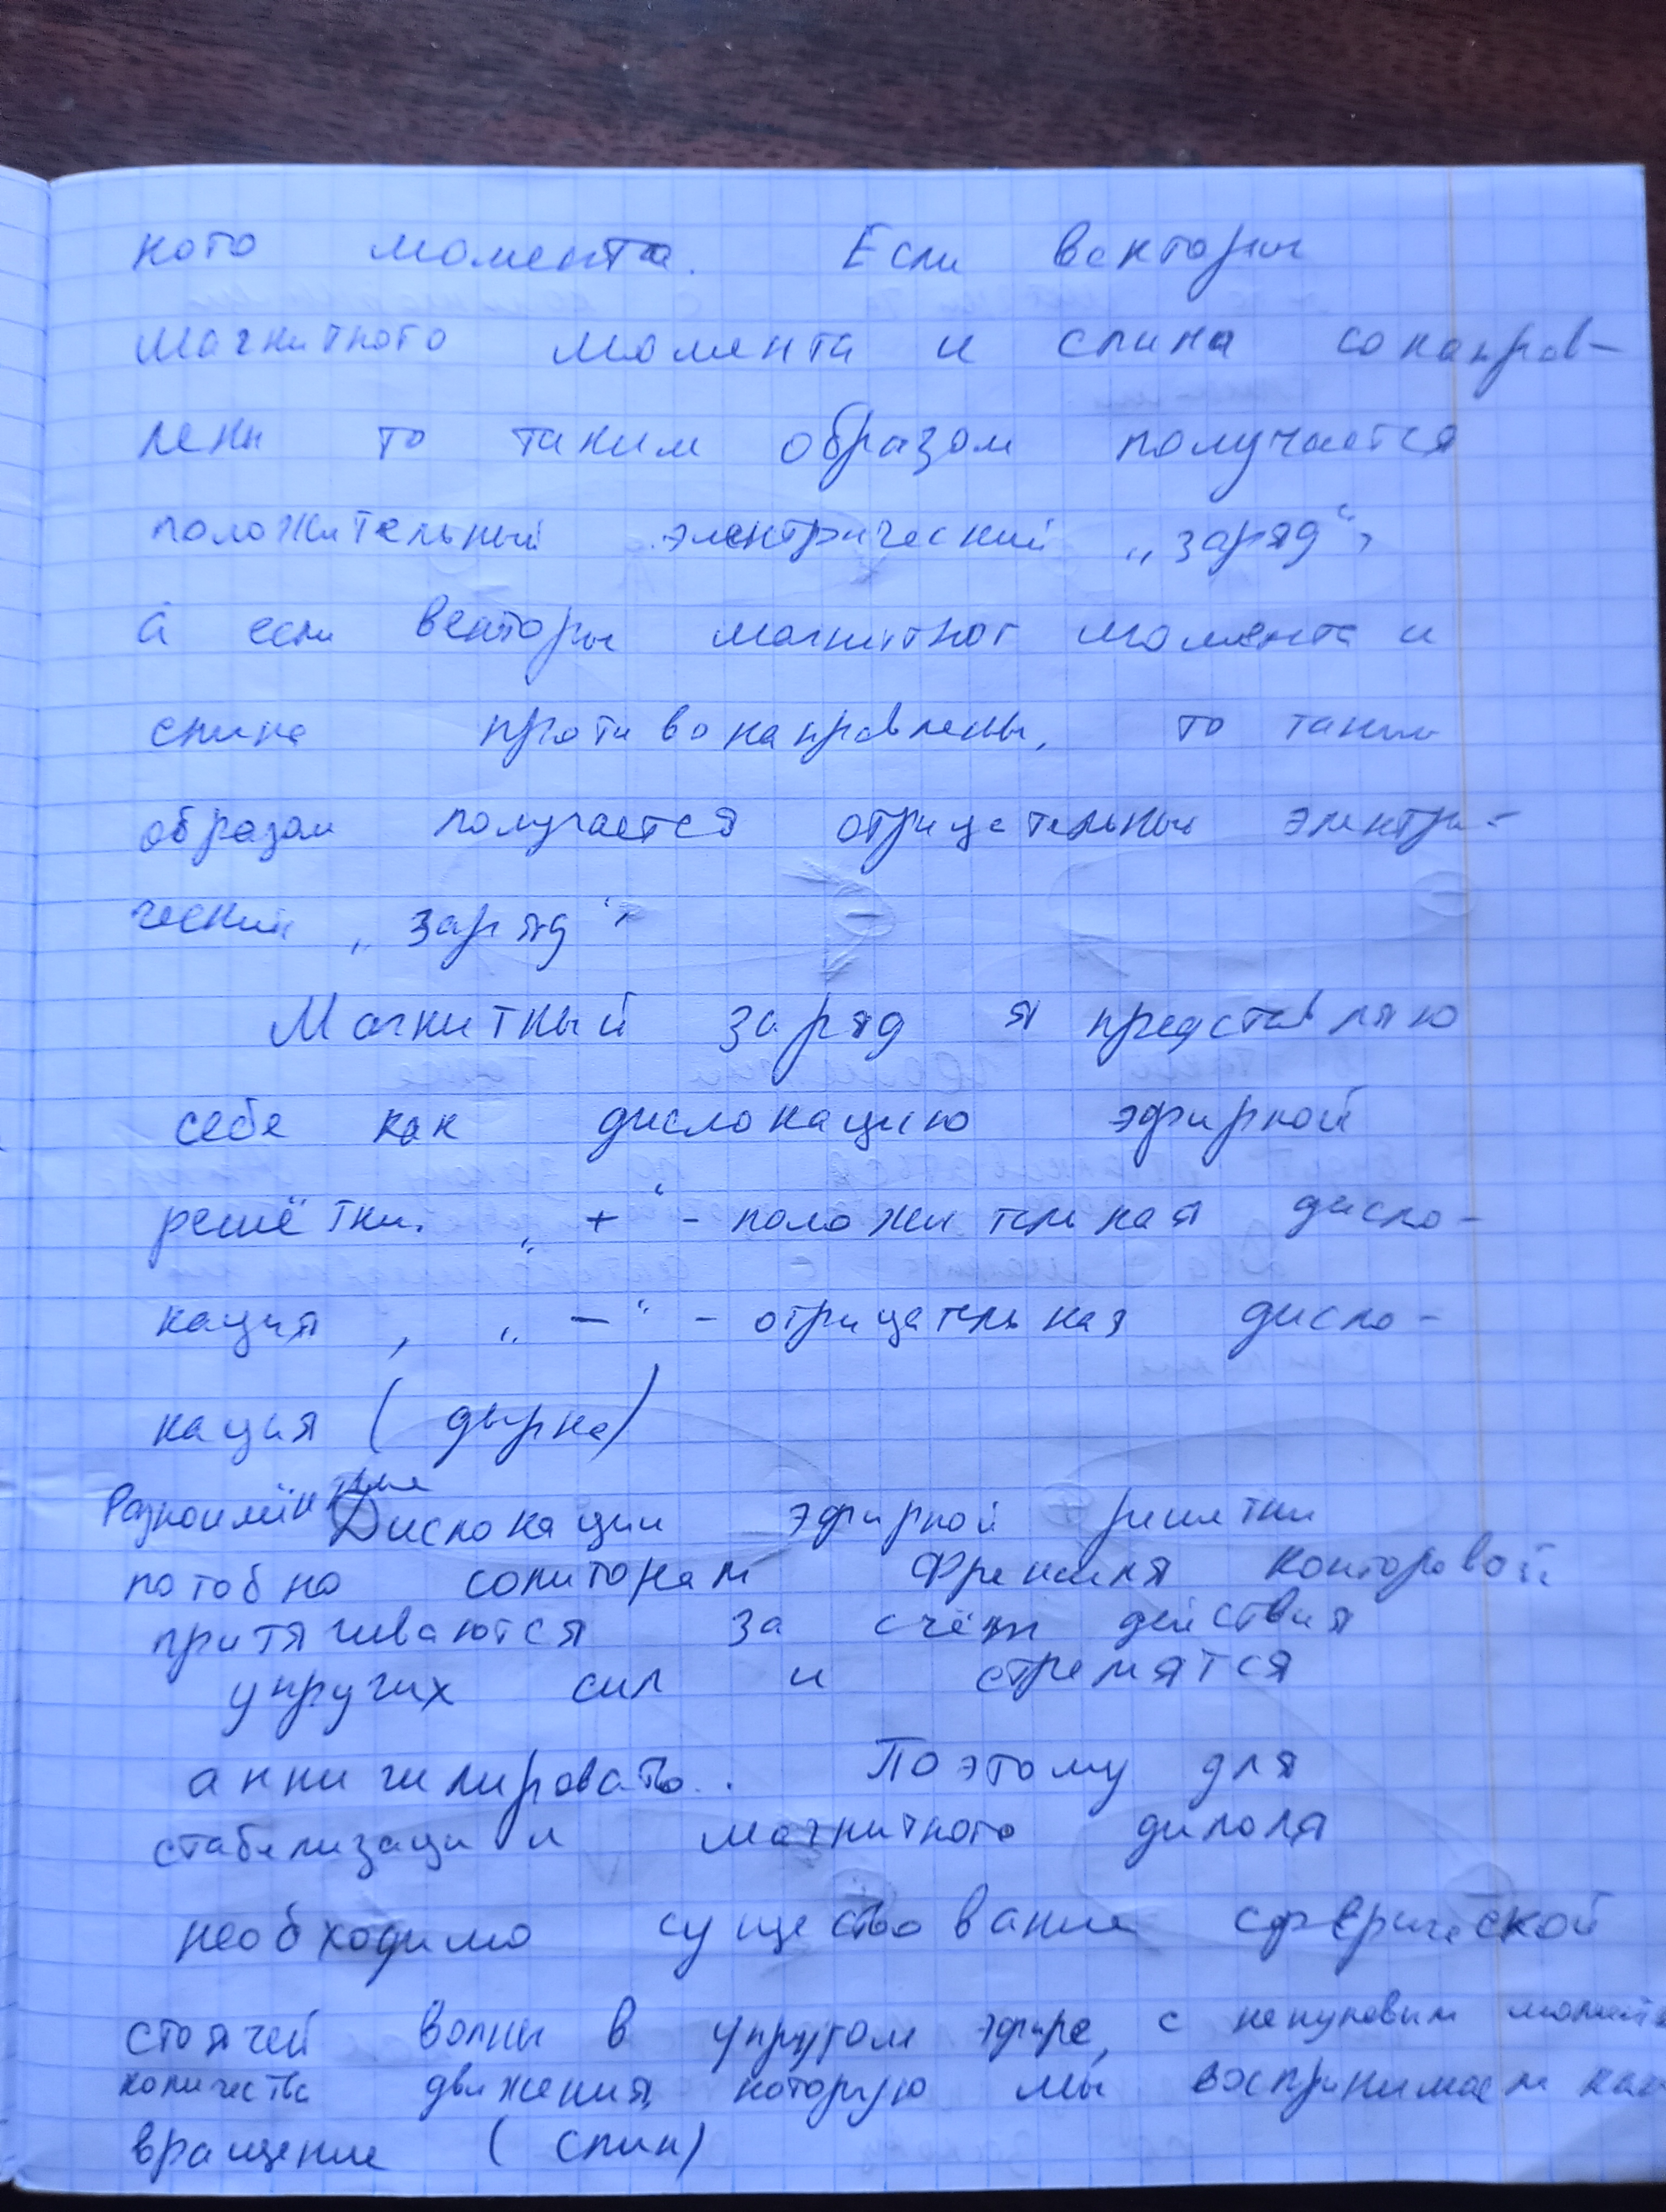 ного момента. Если векторы
магнитного момента и спина сонаправ-
лены то таким образом получается
положительный электрический „заряд“,
а если векторы магнитног момента и
спина противонаправлены, то таким
образом получается отрицательный электри-
ческий „заряд“
Магнитный заряд я представляю
себе как дислокацию эфирной
решётки. „+“ - положительная дисло-
кация, „—“ - отрицательная дисло-
кация (дырка)
Разноимённые Дислокации эфирной решетки
потобно солитонам Френкеля Конторовой
притягиваются за счёт действия
упругих сил и стремятся
аннигилировать. Поэтому для
стабилизации магнитного диполя
необходимо существование сферической
стоячей волны в упругом эфире, с ненулевым
количества движения, которую мы воспринимаем как
вращение (спин)